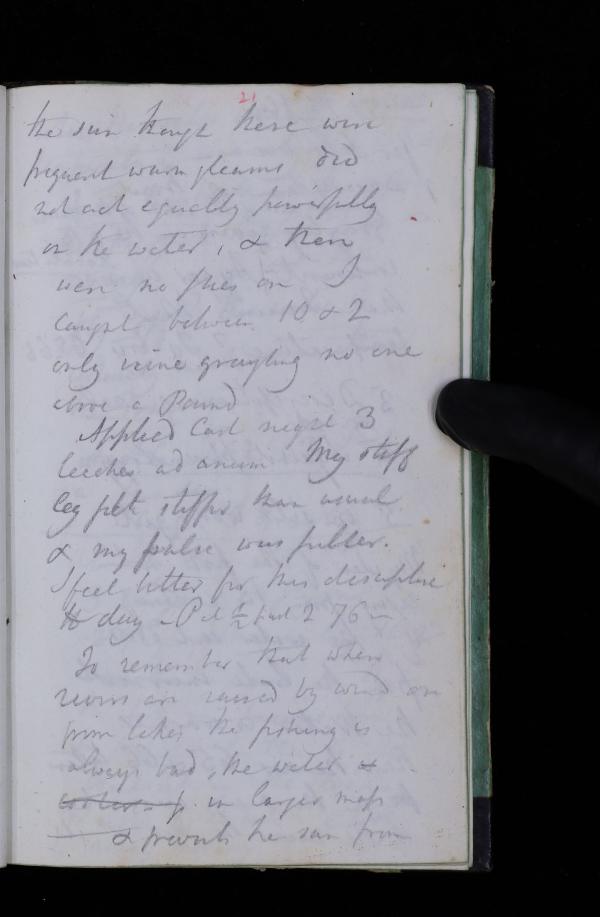 21
the sun though there were
frequent warm gleams did
not act equally powerfully
on the water, & there
were no flies on I
caught between 10 & 2
only nine grayling no one
above a Pound
Applied last night 3
leeches ad anum My stiff
leg felt stiffer than usual
& my pulse was fuller.
I feel better for this discipline
to day P at ½ past 2 76
To remember that when
rivers are raised by wind or
from lakes the fishing is
always bad, the water
in larger mass
& prevents the sun from